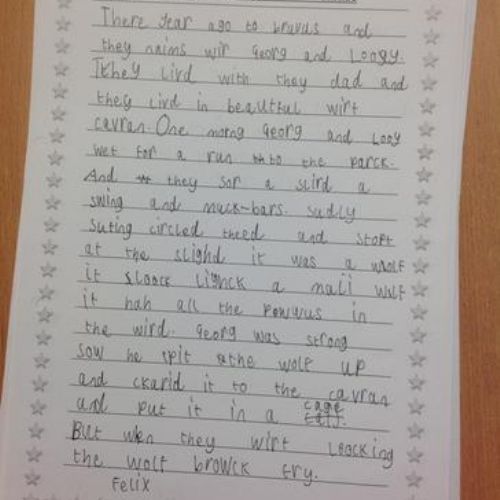 There Year ago to bruvus and
they naims wir Georg and Loogy.
They livd with they dad and
they livd in beautful wirt
cavran. One morng Georg and Looy
wet for a run to the parck.
And they sor a slird a
swing and muck-bars. sudly
suting circled theed and stort
at the slighd it was a woolf
it sloock lignck a mali wulf
it hah all the powwus in
the wird. Georg was strong
sow he spit the wolf up
and ckarid it to the cavran
and put it in a cage
But when they wirt loocking
the wolf browck fry.
Felix